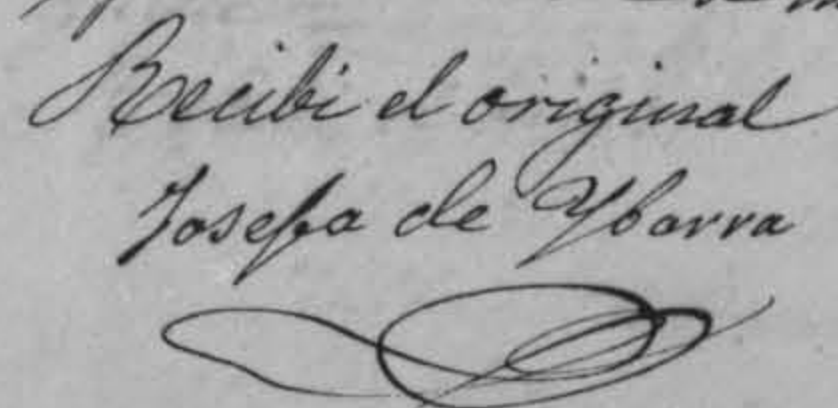 Recibi el original
Josefa de Ybarra